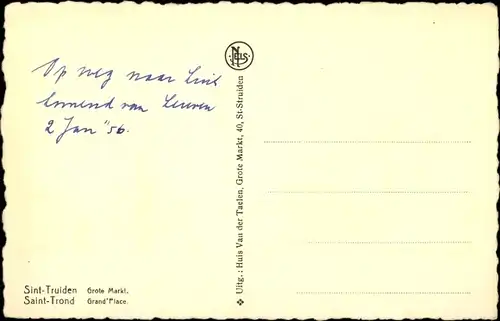 Op weg naar Luik
komend van Leuven
2 Jan "56.
NELS
Uitg.: Huis Van der Taelen, Grote Markt, 40, St-Struiden
Sint-Truiden Grote Markt.
Saint-Trond Grand'Place.